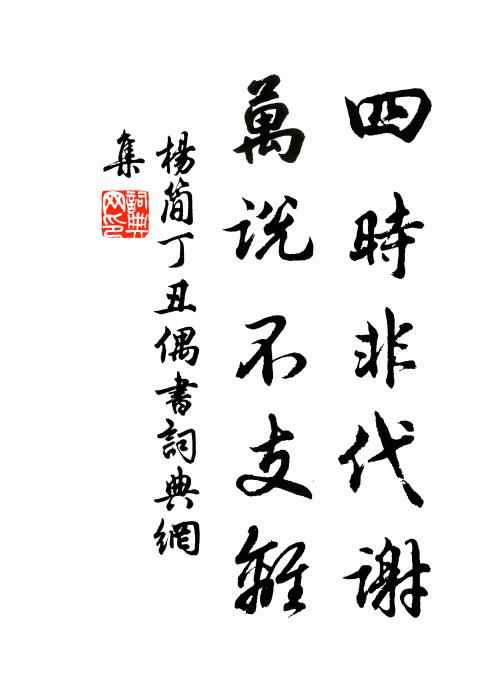 四時非代謝
萬說不支離
楊簡丁丑偶書詞典網
集
詞典网印